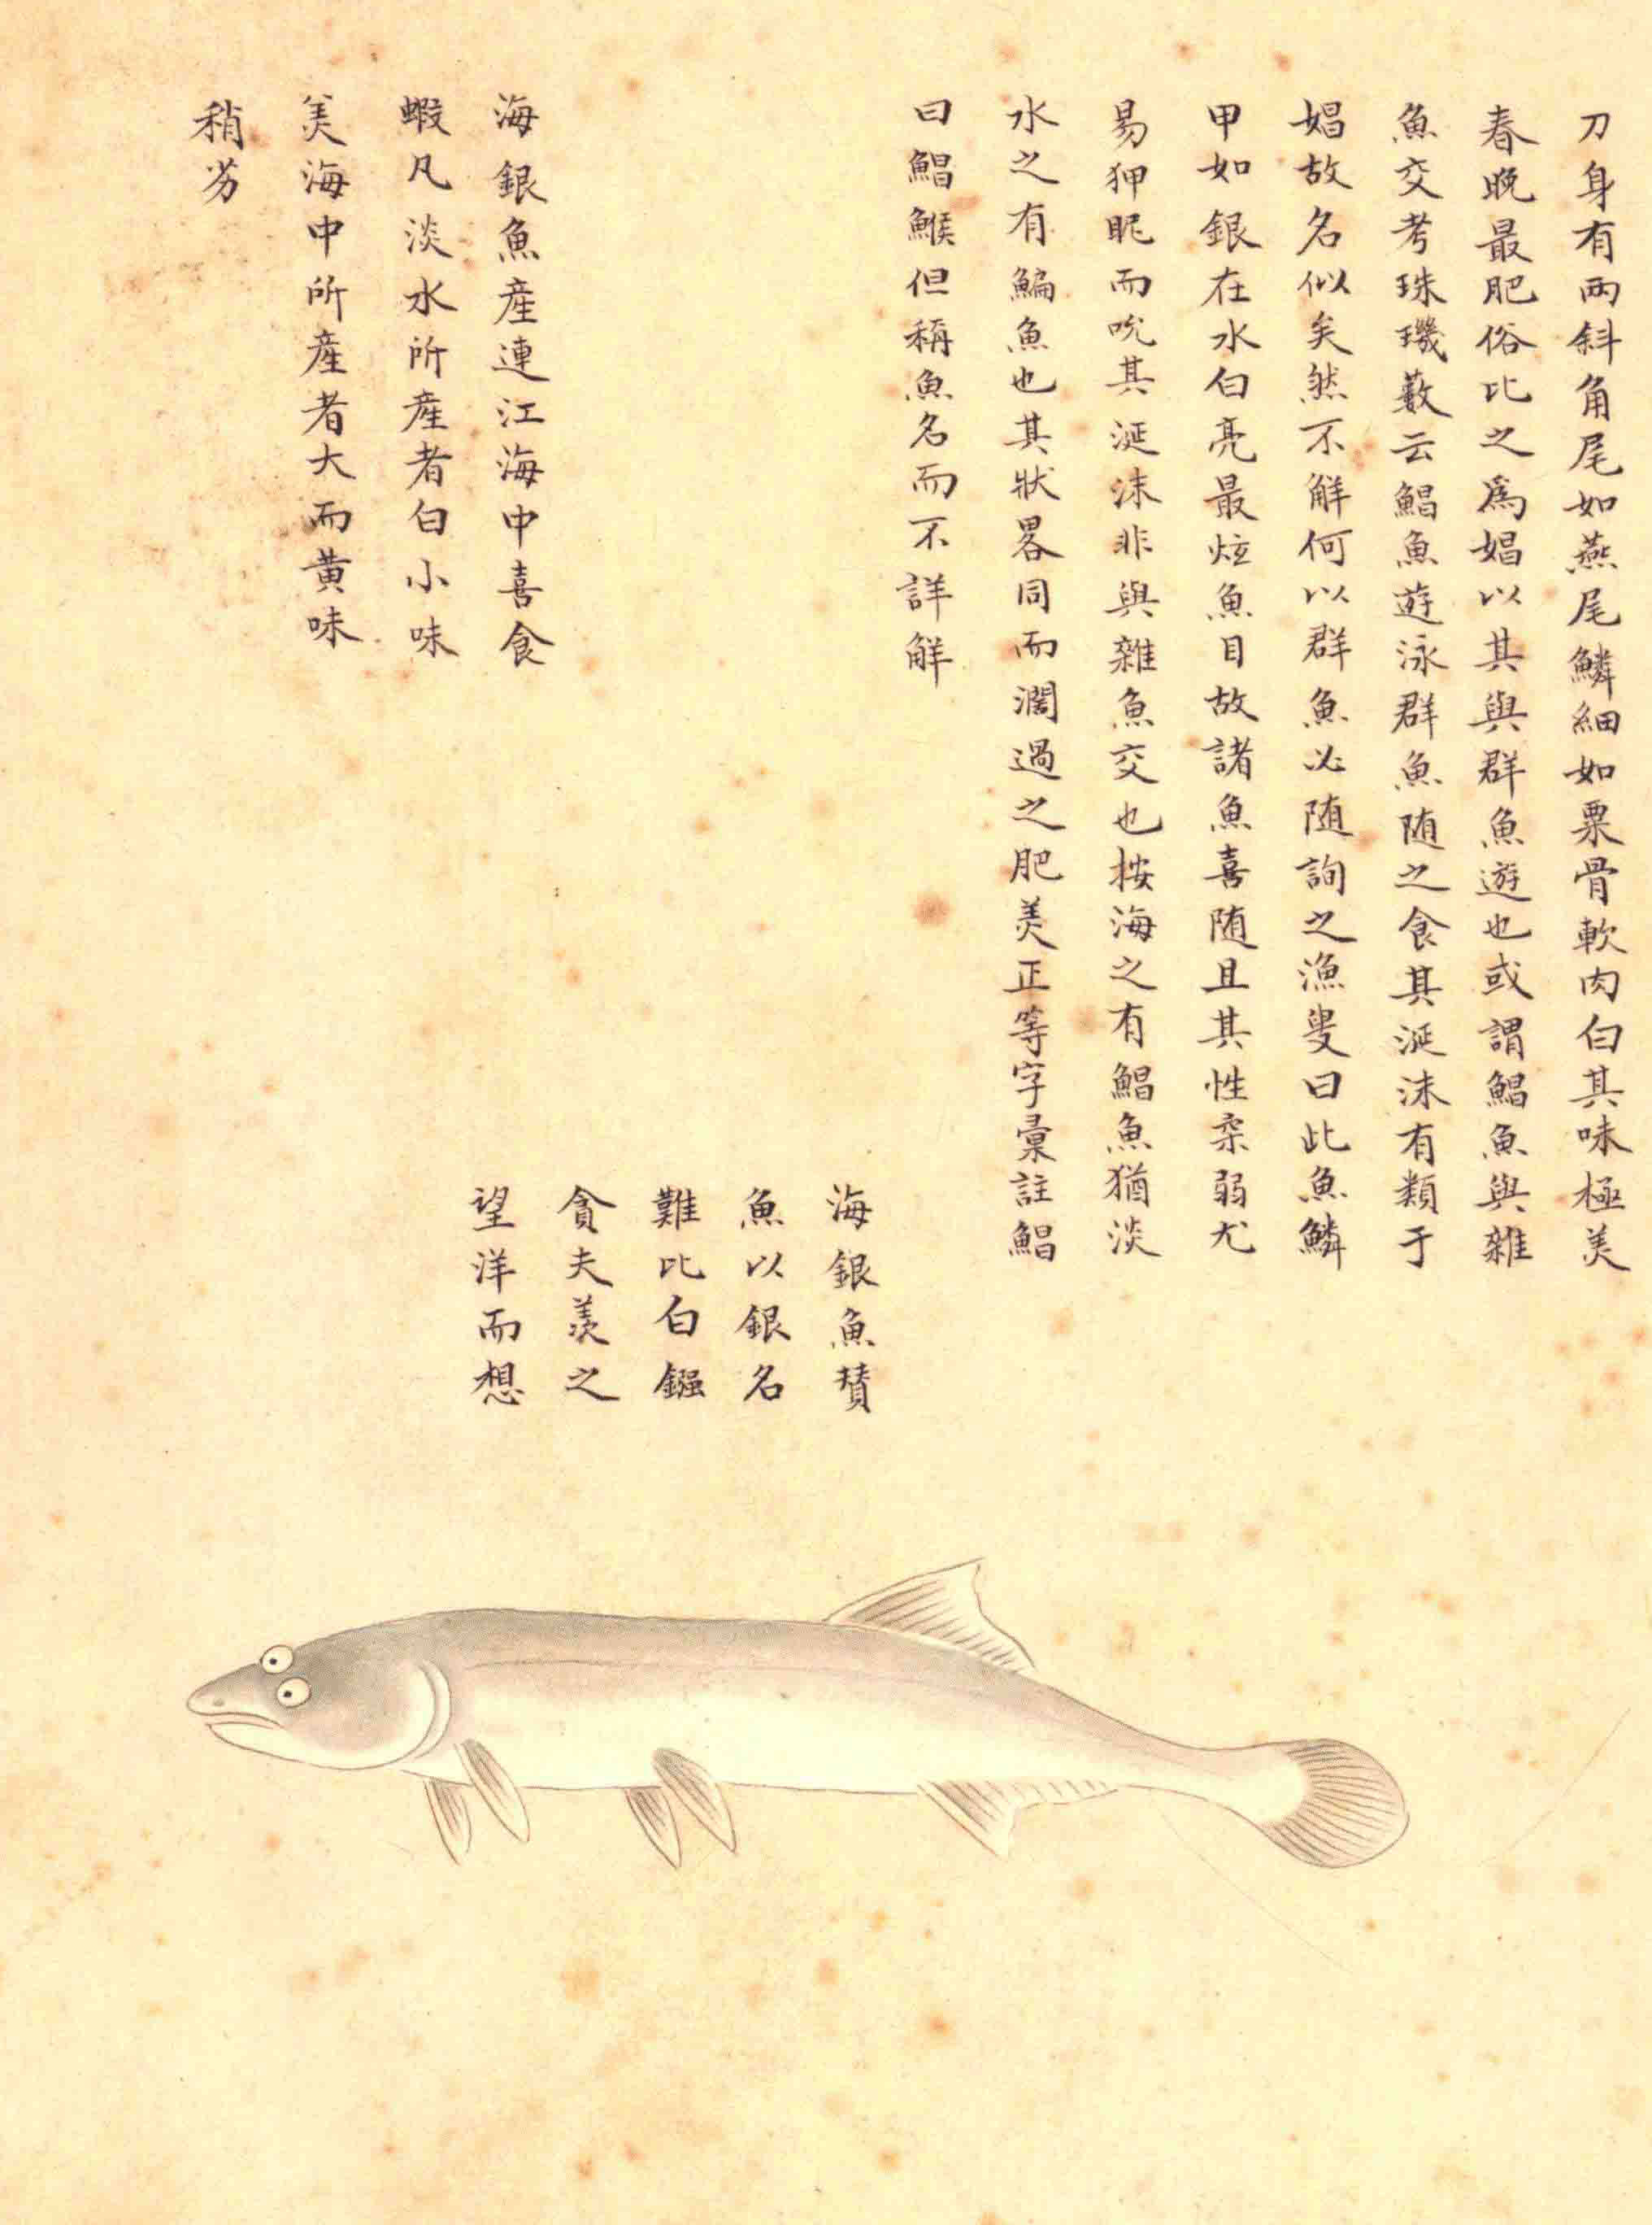 刀身有兩斜角尾如燕尾鱗細如粟骨軟肉白其味極美
春晚最肥俗比之為娼以其與群魚遊也或謂鯧魚與雜
魚交考珠璣藪云鯧魚遊泳群魚随之食其涎沫有類于
娼故名似矣然不解何以群魚必随詢之漁叟曰此魚鱗
甲如銀在水白亮最炫魚目故諸魚喜随且其性柔弱尤
易狎眤而吮其涎沫非與雜魚交也按海之有鯧魚猶淡
水之有鯿魚也其狀畧同而濶過之肥美正等字彙註鯧
曰鯧鯸但稱魚名而不詳解
海銀魚贊
魚以銀名
難比白鏹
貪夫羨之
望洋而想
海銀魚産連江海中喜食
蝦凡淡水所産者白小味
美海中所産者大而黄味
稍劣